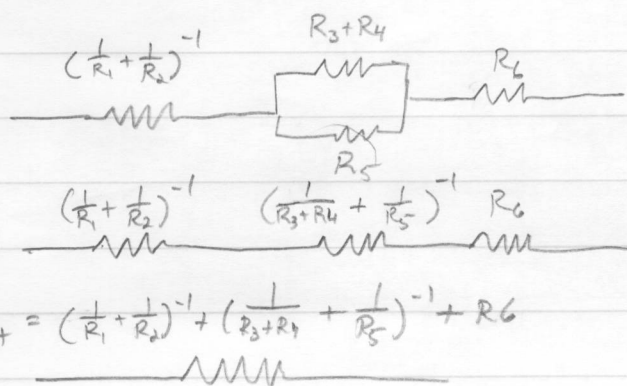 (1/R₁ + 1/R₂)⁻¹ R₃+R₄ R₆
R₅
(1/R₁ + 1/R₂)⁻¹ (1/(R₃+R₄) + 1/R₅)⁻¹ R₆
= (1/R₁ + 1/R₂)⁻¹ + (1/(R₃+R₄) + 1/R₅)⁻¹ + R6